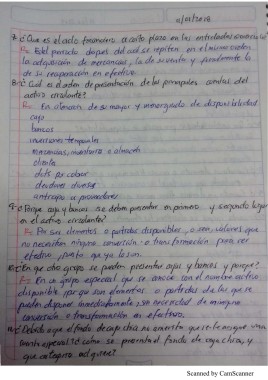 11/01/2018
7. ¿Que es el ciclo financiero a corto plazo en las entidades
R= Es el periodo despues del cual se repiten en el mismo orden
la adquisicion de mercancias, la de su venta y finalmente la
de su recuperacion en efectivo.
8. ¿Cual es el orden de presentación de las principales cuentas del
activo circulante?
R= En atención de su mayor y menor grado de disponibilidad
caja
bancos
inversiones temporales
mercancias, inventarios o almacen
clientes
dcts por cobrar
deudores diversos
anticipo a proveedores
9. ¿Porque caja y bancos se deben presentar en primero y segundo lugar
en el activo circulante?
R= Por ser elementos o partidas disponibles, o son valores que
no necesitan ninguna conversión o transformación para ser
efectivo, puesto que ya lo son.
10. ¿En que otro grupo se pueden presentar cajas y bancos y porque?
R= En un grupo especial que se conoce con el nombre activo
disponible, porque son elementos o partidas de las que se
pueden disponer inmediatamente, sin necesidad de ninguna
conversión o transformación en efectivo.
11. ¿Debido a que el fondo de caja chica no amerita que se le asigne una
cuenta especial como se presenta el fondo de caja chica, y
que categoria adquiere?
Scanned by CamScanner